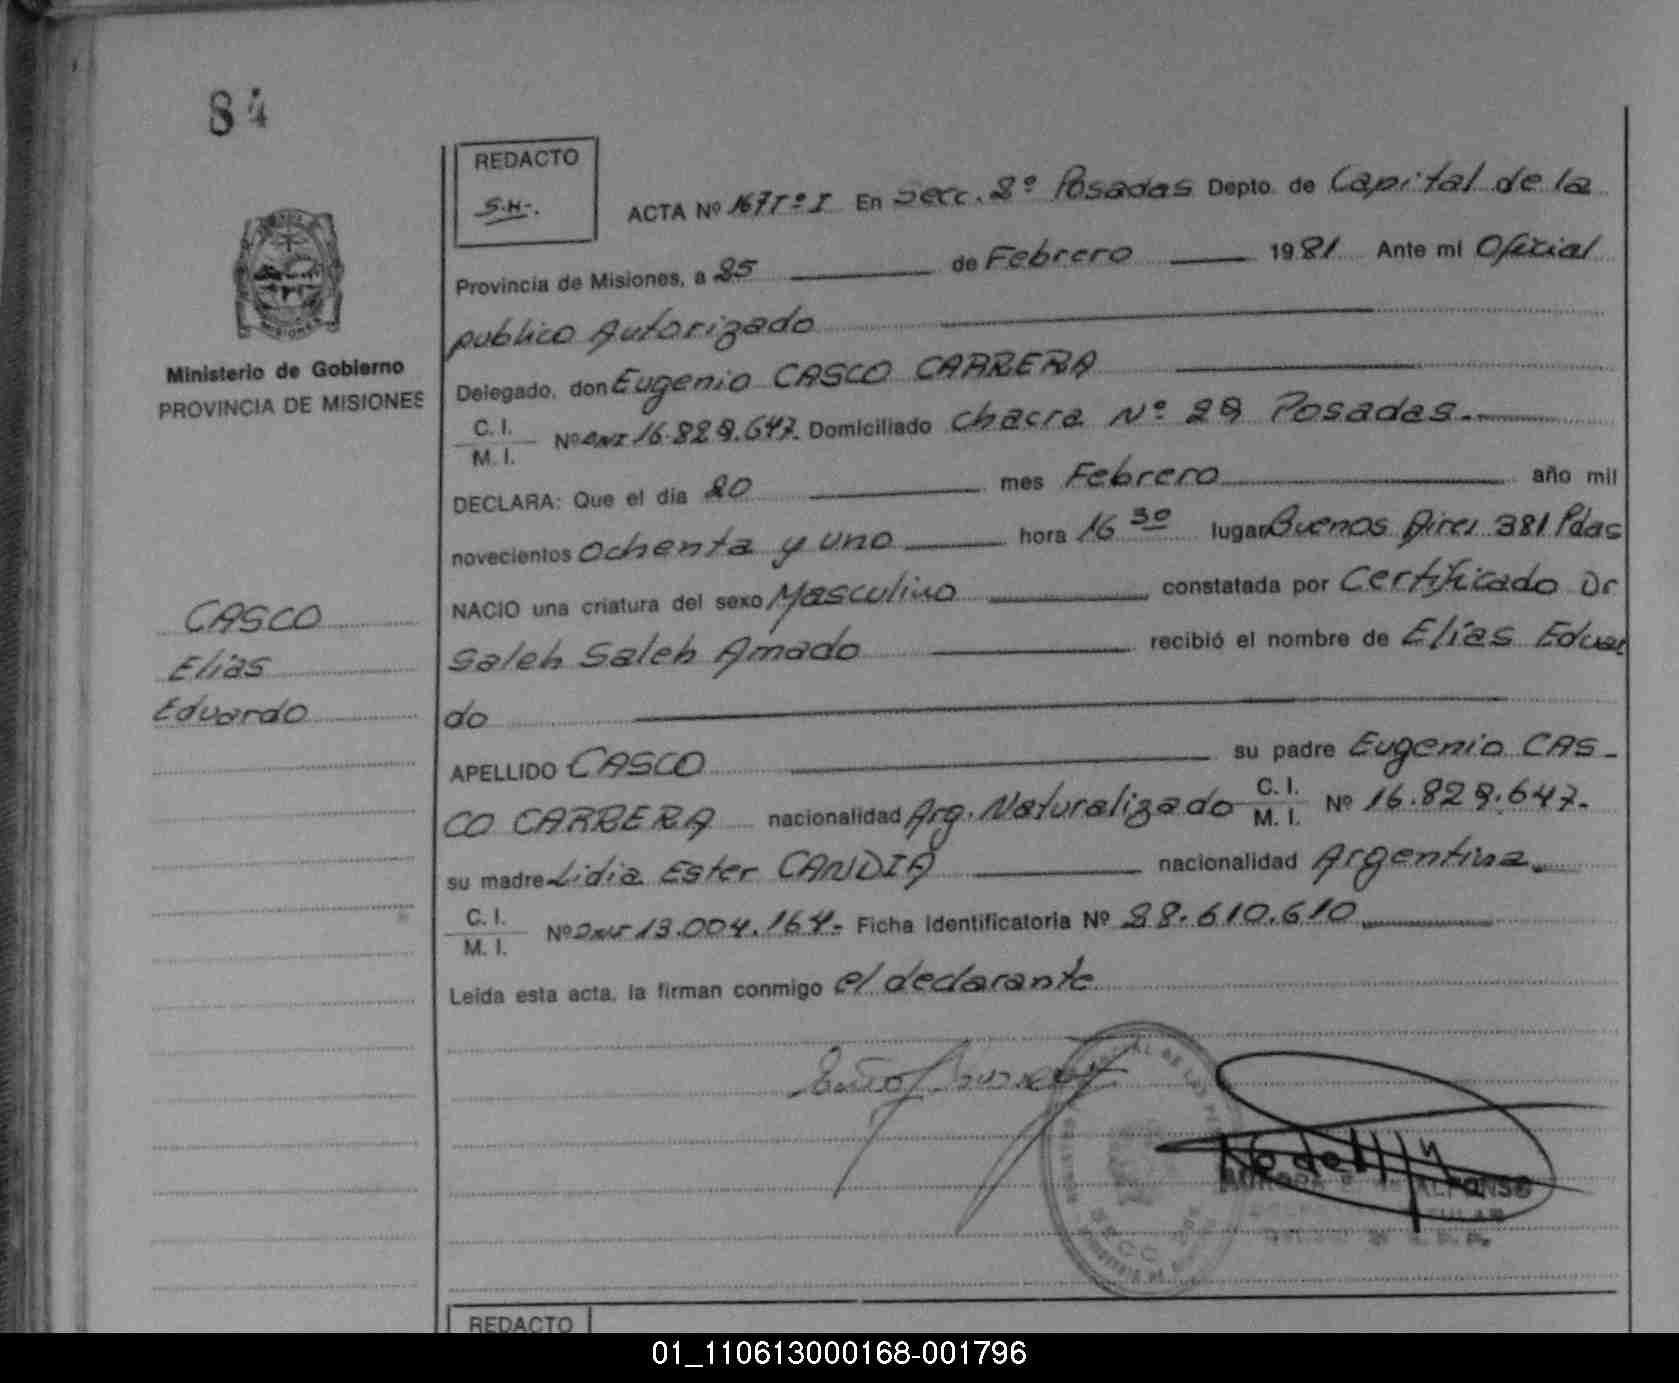 84
REDACTO
S.H-.
ACTA Nº 167 Tº I En Secc. 2º Posadas Depto. de Capital de la
Provincia de Misiones, a 25 de Febrero 1981 Ante mi Oficial
publico Autorizado
Delegado, don Eugenio CASCO CARRERA
C. I.
M. I.
Nº DNI 16.829.647. Domiciliado Chacra Nº 29 Posadas.
DECLARA: Que el día 20 mes Febrero año mil
novecientos ochenta y uno hora 16 30 lugar Buenos Aires 381 Pdas
NACIO una criatura del sexo Masculino constatada por Certificado Dr
Saleh Saleh Amado recibió el nombre de Elias Eduar
do
APELLIDO CASCO su padre Eugenio CAS-
CO CARRERA nacionalidad Arg. Naturalizado C. I. M. I. Nº 16.829.647.
su madre Lidia Ester CANDIA nacionalidad Argentina.
C. I.
M. I.
Nº DNI 13.004.164. Ficha Identificatoria Nº 28.610.610
Leída esta acta, la firman conmigo el declarante
Ministerio de Gobierno
PROVINCIA DE MISIONES
CASCO
Elias
Eduardo
ALFONSO
REDACTO
01_110613000168-001796